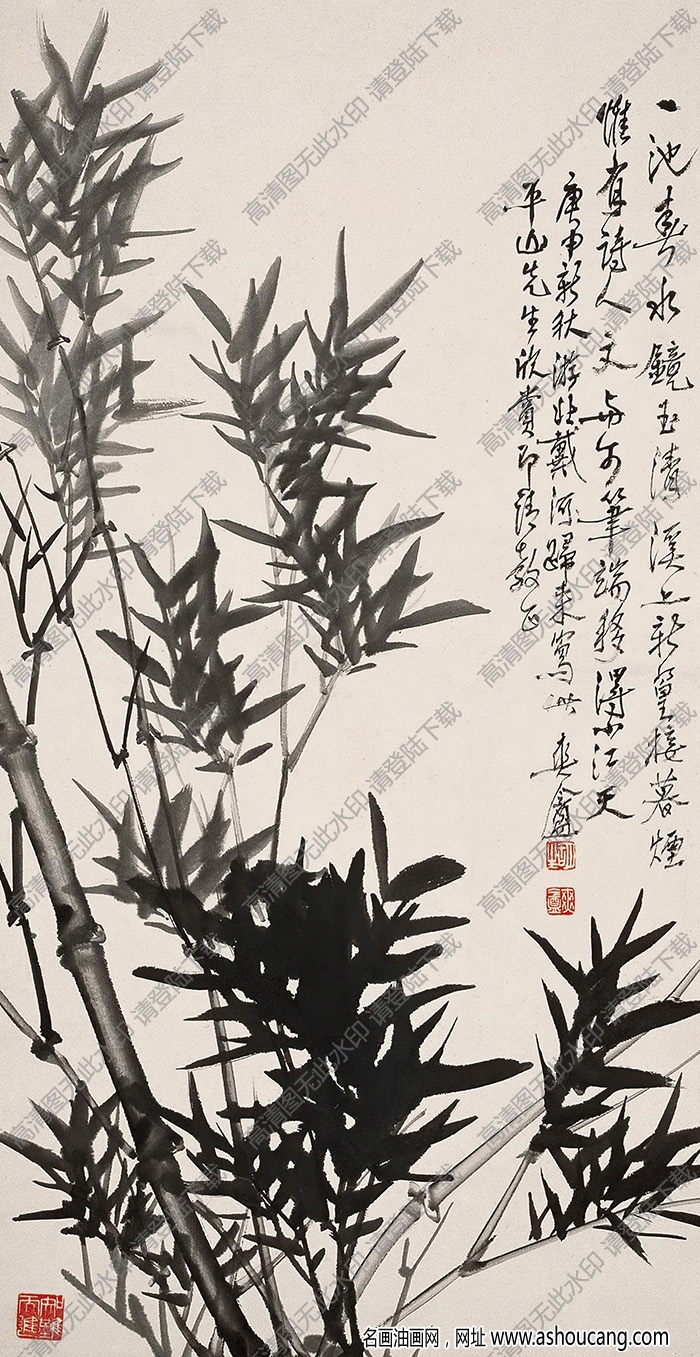 一池春水镜玉清溪上新篁接暮烟
惟有詩人文与可筆端移得小江天
庚申新秋游北戴河歸來寫此 爽盦
平山先生欣賞即請教正
高清图无此水印 请登陆下载
名画油画网，网址 www.ashoucang.com